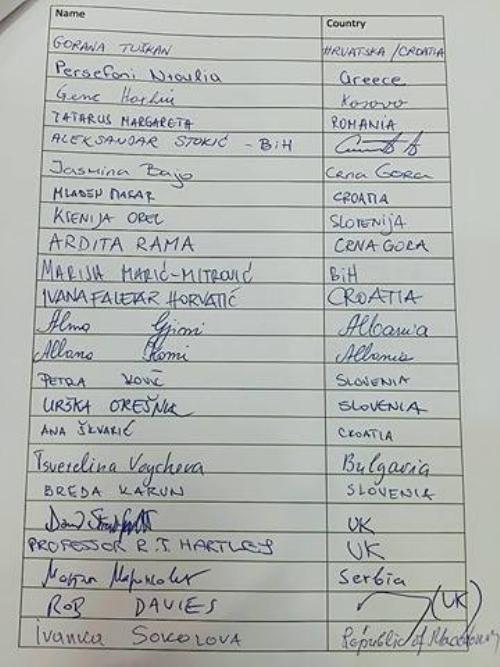 Name Country
GORANA TUŠKAN HRVATSKA / CROATIA
Persefoni Greece
Genc Kosovo
TATARUS MARGARETA ROMANIA
ALEKSANDAR STOKIĆ - BiH
Jasmina Bajo Crna Gora
MLADEN MASAR CROATIA
KSENIJA OREL SLOVENIJA
ARDITA RAMA CRNA GORA
MARIJA MARIĆ-MITROVIĆ BiH
IVANA FALETAR HORVATIĆ CROATIA
Alma Gjoni Albania
Albana Albania
PETRA KOVIČ SLOVENIA
URŠKA OREŠNIK SLOVENIA
ANA ŠKVARIĆ CROATIA
Tsvetelina Voycheva Bulgaria
BREDA KARUN SLOVENIA
UK
PROFESSOR R.T. HARTLEY UK
Serbia
ROB DAVIES (UK)
Ivanka SOKOLOVA Republic of Macedonia